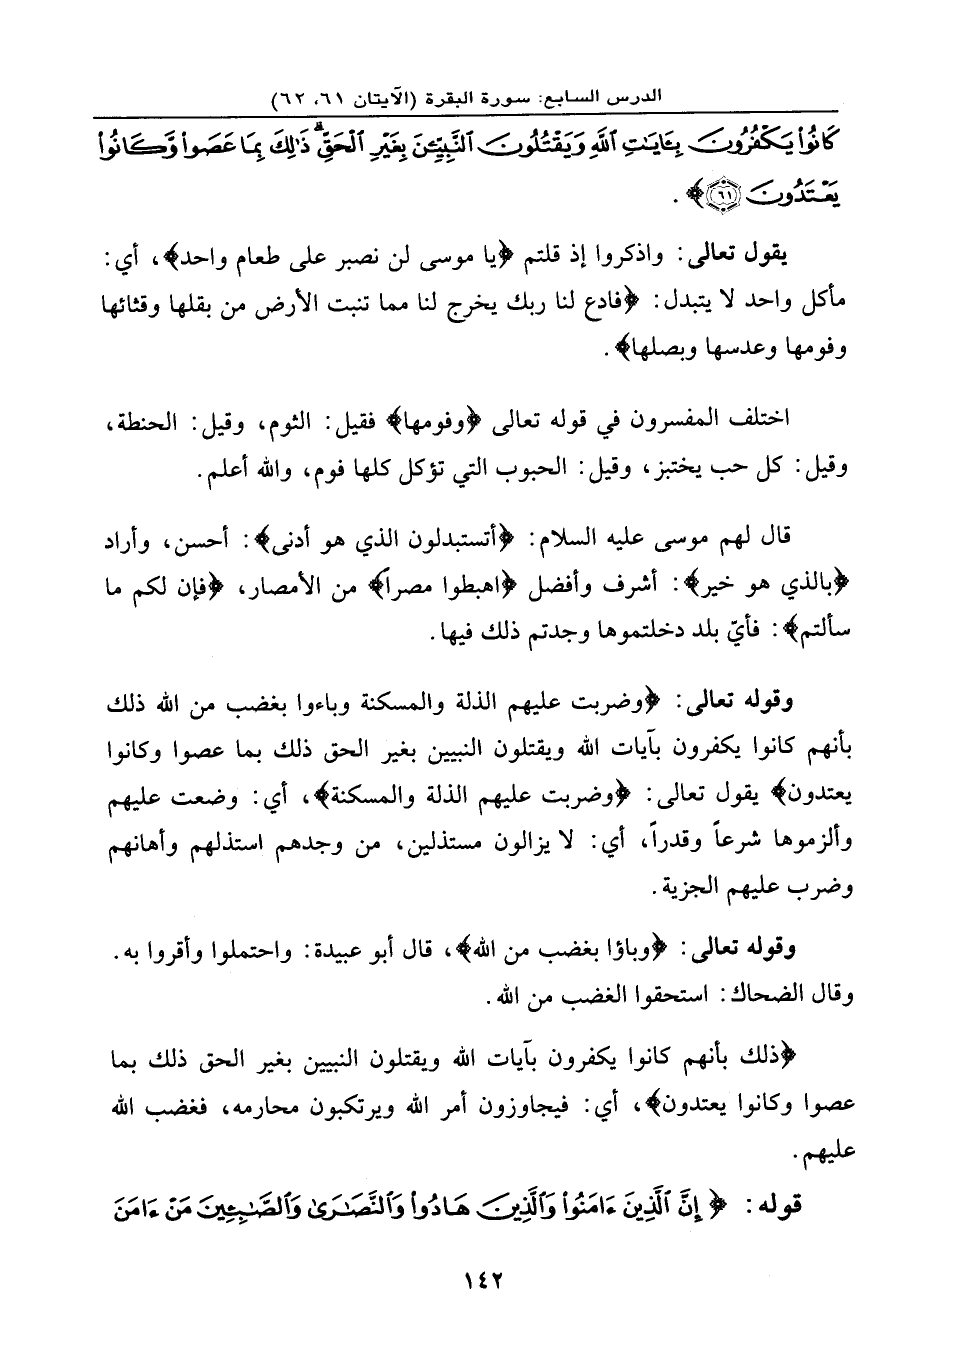 الدرس السابع: سورة البقرة (الآيتان ٦١، ٦٢)
كَانُوا۟ يَكْفُرُونَ بِـَٔايَـٰتِ ٱللَّهِ وَيَقْتُلُونَ ٱلنَّبِيِّـۧنَ بِغَيْرِ ٱلْحَقِّ ۗ ذَٰلِكَ بِمَا عَصَوا۟ وَّكَانُوا۟
يَعْتَدُونَ ﴿٦١﴾ .
يقول تعالى: واذكروا إذ قلتم ﴿يا موسى لن نصبر على طعام واحد﴾، أي:
مأكل واحد لا يتبدل: ﴿فادع لنا ربك يخرج لنا مما تنبت الأرض من بقلها وقثائها
وفومها وعدسها وبصلها﴾.
اختلف المفسرون في قوله تعالى ﴿وفومها﴾ فقيل: الثوم، وقيل: الحنطة،
وقيل: كل حب يختبز، وقيل: الحبوب التي تؤكل كلها فوم، والله أعلم.
قال لهم موسى عليه السلام: ﴿أتستبدلون الذي هو أدنى﴾: أحسن، وأراد
﴿بالذي هو خير﴾: أشرف وأفضل ﴿اهبطوا مصراً﴾ من الأمصار، ﴿فإن لكم ما
سألتم﴾: فأيّ بلد دخلتموها وجدتم ذلك فيها.
وقوله تعالى: ﴿وضربت عليهم الذلة والمسكنة وباءوا بغضب من الله ذلك
بأنهم كانوا يكفرون بآيات الله ويقتلون النبيين بغير الحق ذلك بما عصوا وكانوا
يعتدون﴾ يقول تعالى: ﴿وضربت عليهم الذلة والمسكنة﴾، أي: وضعت عليهم
وألزموها شرعاً وقدراً، أي: لا يزالون مستذلين، من وجدهم استذلهم وأهانهم
وضرب عليهم الجزية.
وقوله تعالى: ﴿وباؤا بغضب من الله﴾، قال أبو عبيدة: واحتملوا وأقروا به.
وقال الضحاك: استحقوا الغضب من الله.
﴿ذلك بأنهم كانوا يكفرون بآيات الله ويقتلون النبيين بغير الحق ذلك بما
عصوا وكانوا يعتدون﴾، أي: فيجاوزون أمر الله ويرتكبون محارمه، فغضب الله
عليهم.
قوله: ﴿إِنَّ ٱلَّذِينَ ءَامَنُوا۟ وَٱلَّذِينَ هَادُوا۟ وَٱلنَّصَـٰرَىٰ وَٱلصَّـٰبِـِٔينَ مَنْ ءَامَنَ
١٤٢